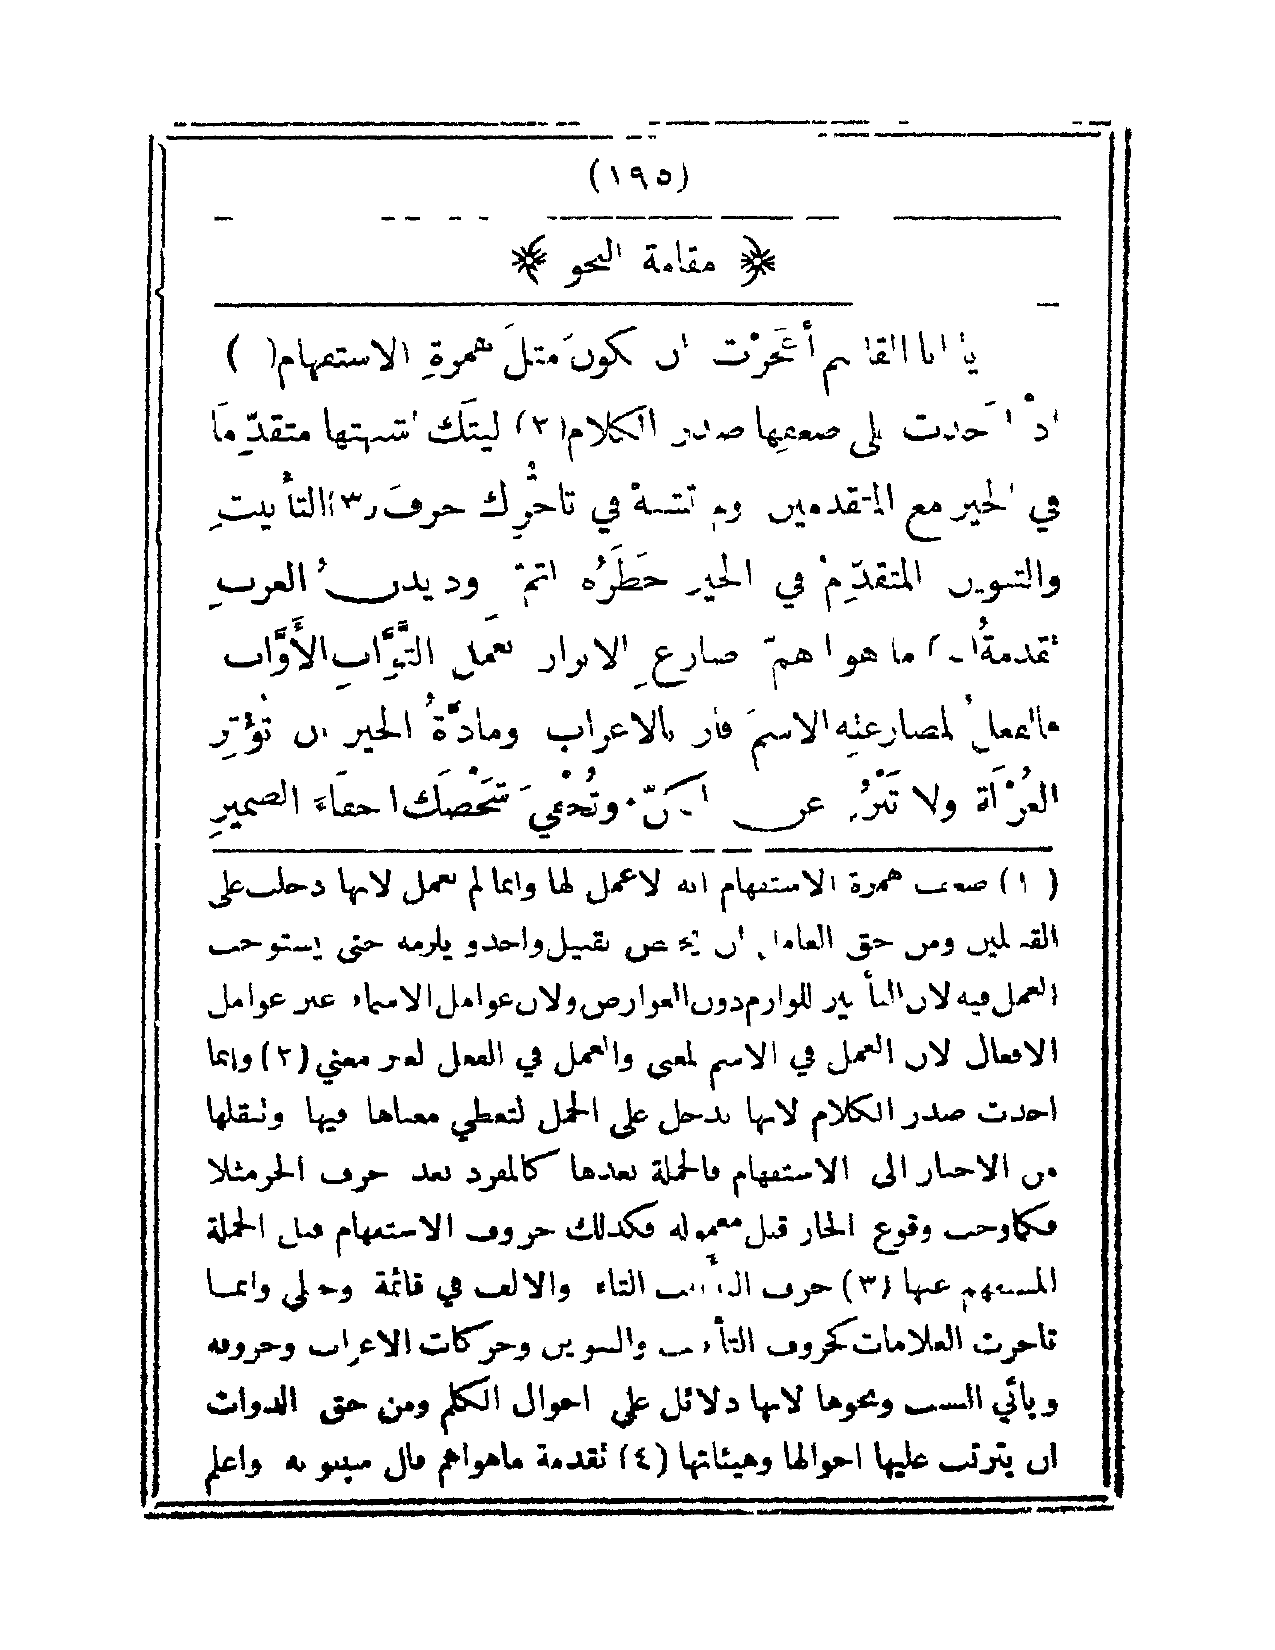 (١٩٥)
﴿ مقامة النحو ﴾
يا ابا القاسم أعجزت ان تكون مثل همزة الاستفهام(١)
اذ اخذت على ضعفها صدر الكلام(٢) ليتك اشبهتها متقدما
في الخير مع المتقدمين ولم تشبه في تأخرك حرف(٣)التأنيث
والتنوين المتقدم في الخير خطره اتم وديدن العرب
تقدمة(٤) ما هو اهم ضارع الابرار بعمل التواب الأواب
فالفعل لمضارعته الاسم فاز بالاعراب ومادة الخير ان تؤثر
العزلة ولا تبرز عن الكن وتخفي شخصك اخفاء الضمير
(١) ضعف همزة الاستفهام انه لا عمل لها وانما لم تعمل لانها دخلت على
القبيلين ومن حق العامل ان يختص بقبيل واحد ويلزمه حتى يستوجب
العمل فيه لان التأثير للوازم دون العوارض ولان عوامل الاسماء غير عوامل
الافعال لان العمل في الاسم لمعنى والعمل في الفعل لغير معنى (٢) وانما
اخذت صدر الكلام لانها تدخل على الجمل لتعطي معناها فيها وتنقلها
من الاخبار الى الاستفهام فالجملة بعدها كالمفرد بعد حرف الجر مثلا
فكما وجب وقوع الجار قبل معموله فكذلك حروف الاستفهام قبل الجملة
المستفهم عنها (٣) حرف التأنيث التاء والالف في قائمة وحبلى وانما
تأخرت العلامات كحروف التأنيث والتنوين وحركات الاعراب وحروفه
ويائي النسب ونحوها لانها دلائل على احوال الكلم ومن حق الذوات
ان يترتب عليها احوالها وهيئاتها (٤) تقدمة ما هو اهم قال سيبويه واعلم